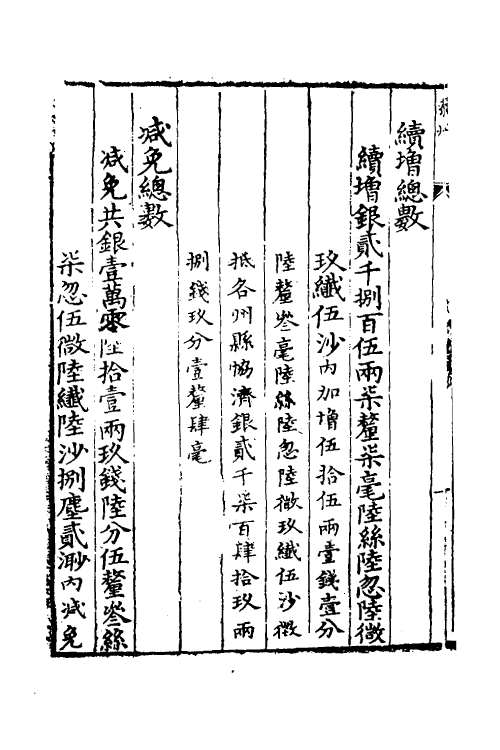 續增總數
續增銀貳千捌百伍兩柒釐柒毫陸絲陸忽陸微
玖纖伍沙內加增伍拾伍兩壹錢壹分
陸釐叄毫陸絲陸忽陸微玖纖伍沙徵
抵各州縣協濟銀貳千柒百肆拾玖兩
捌錢玖分壹釐肆毫
减免總數
减免共銀壹萬零陸拾壹兩玖錢陸分伍釐叄絲
柒忽伍微陸纖陸沙捌塵貳渺內减免